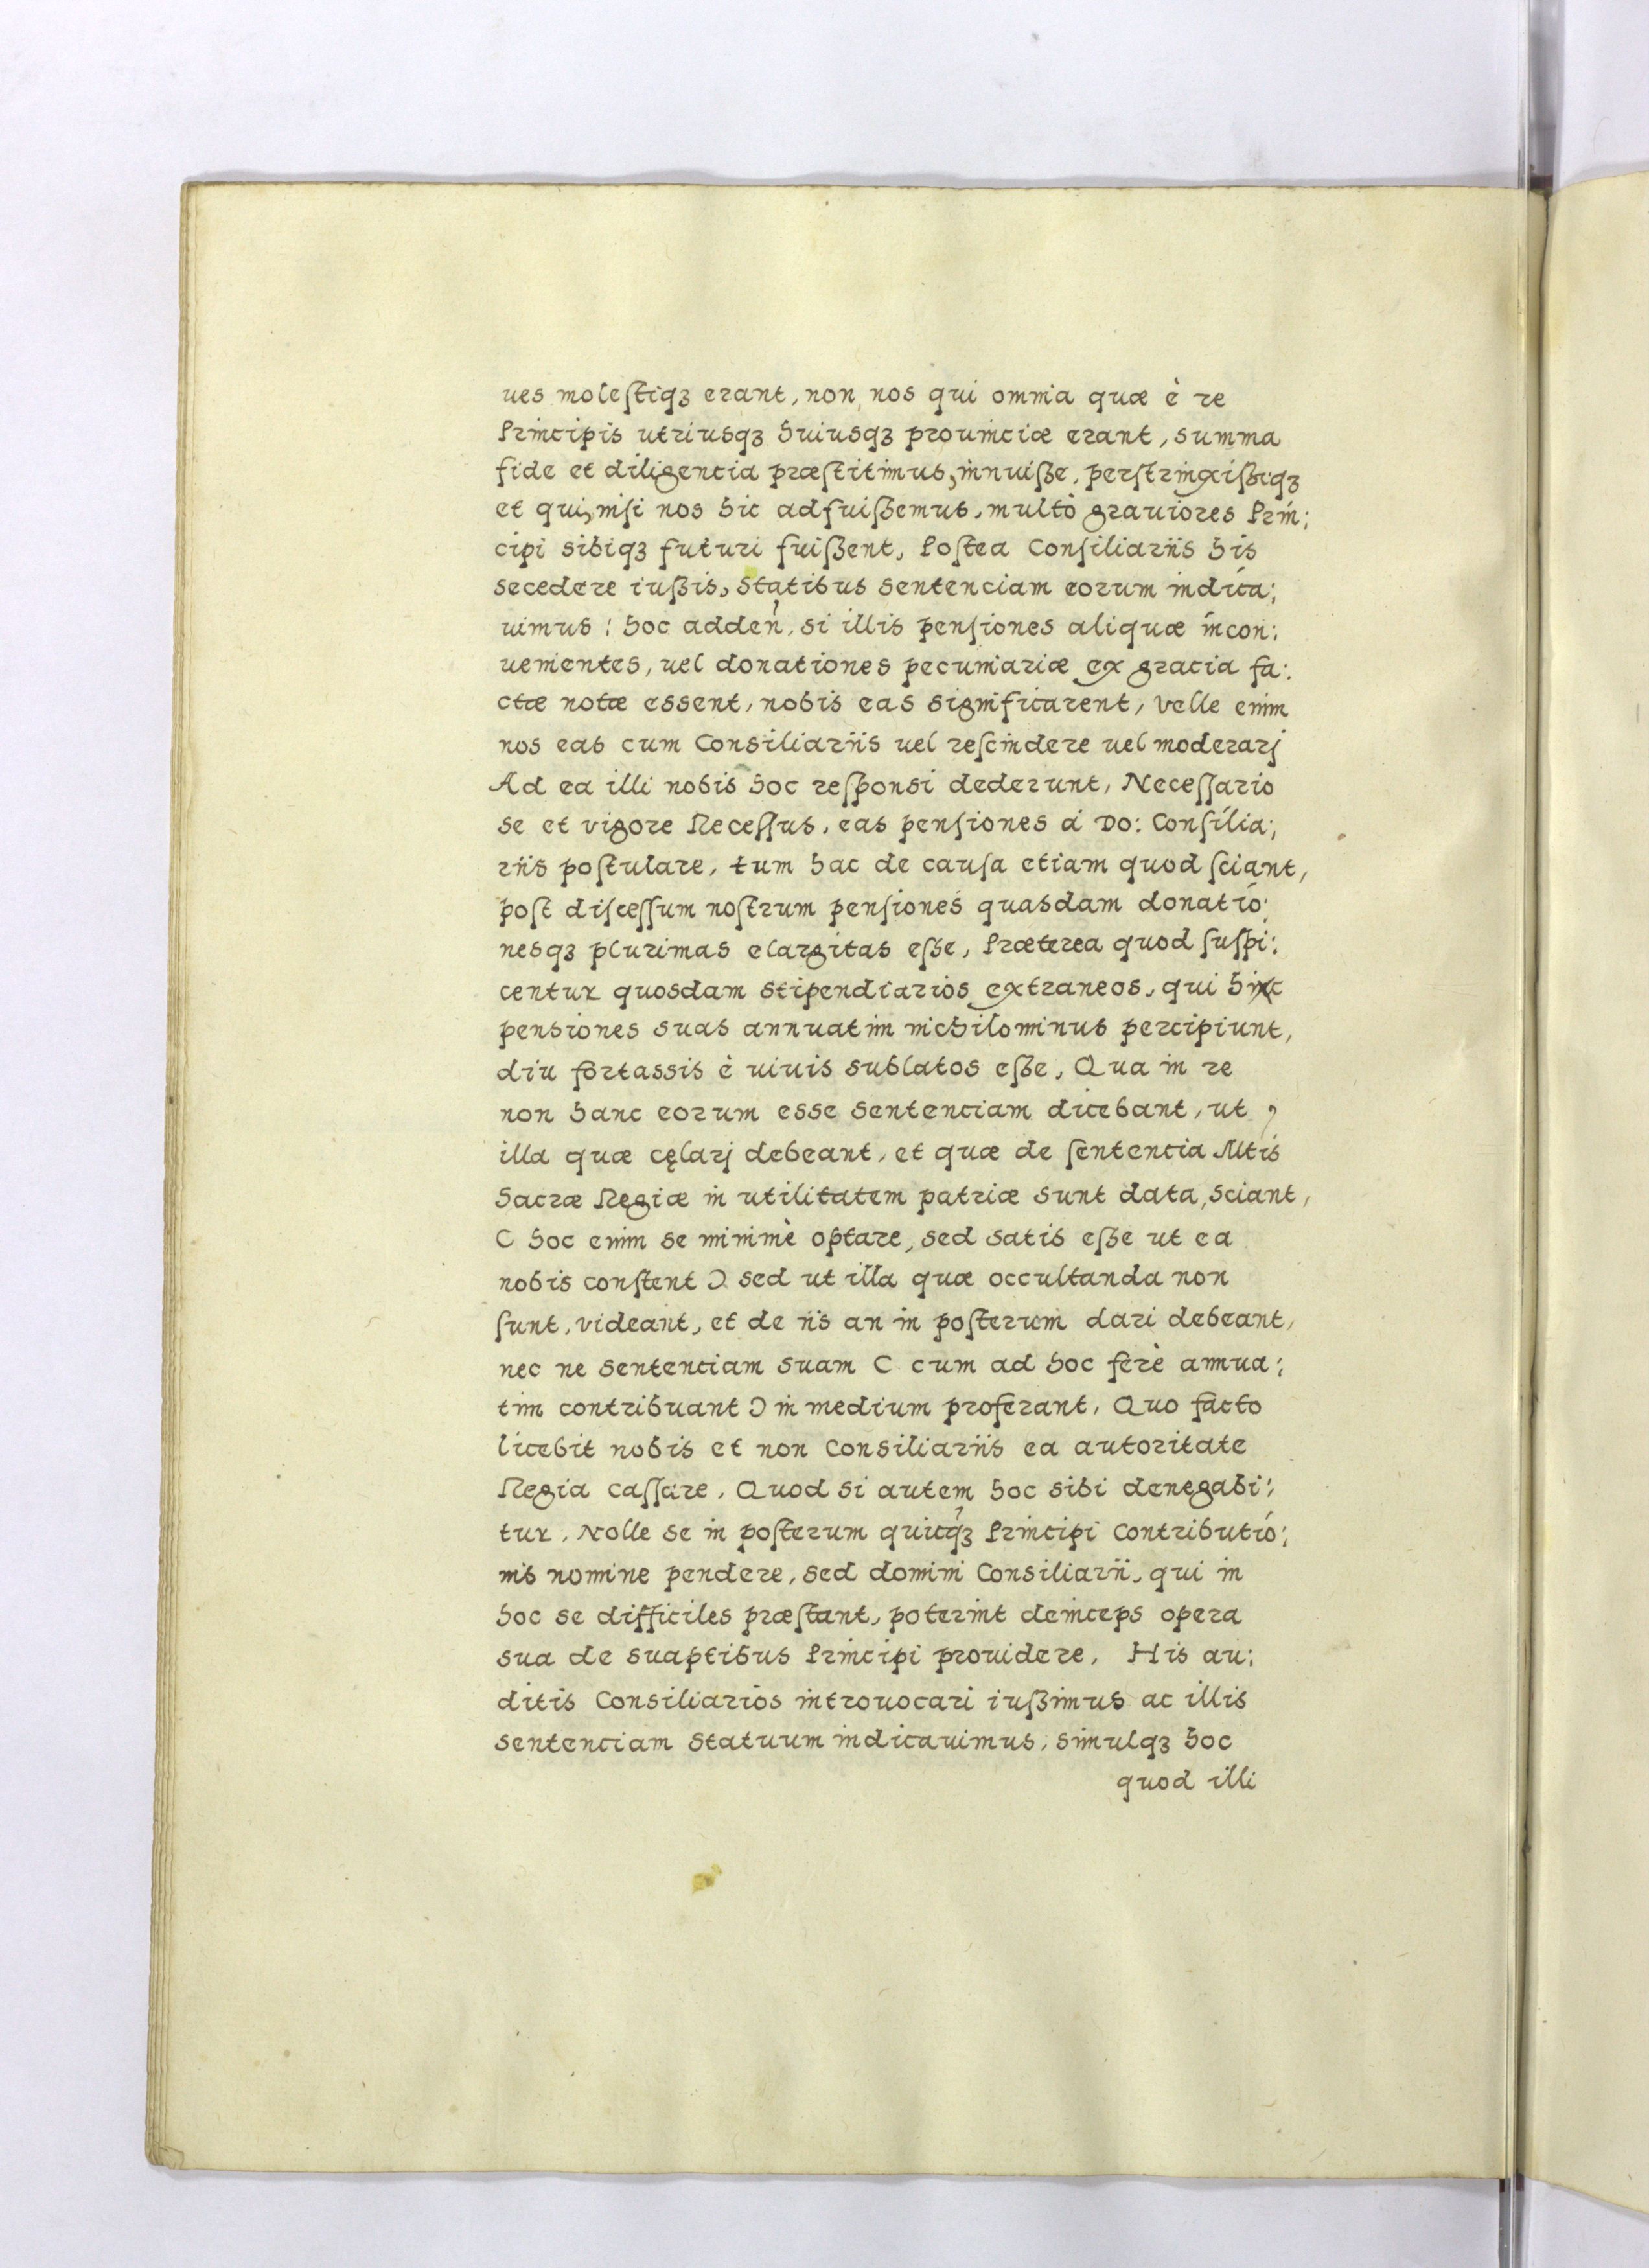 ues moleſtiqꝫ erant, non, nos qui omnia quæ è re
Principis utriusqꝫ huiusqꝫ prouinciæ erant, summa
fide et diligencia præſtitimus, innuiſse, perſtrinxiſseqꝫ
et qui, niſi nos hic adfuiſsemus, multò grauiores Prin:
cipi sibiqꝫ futuri fuiſsent, Poſtea Conſiliariis his
secedere iuſsis, Statibus sentenciam eorum indica:
uimus: hoc adden̉, si illis penſiones aliquæ incon:
uenientes, uel donationes pecuniariæ ex gracia fa:
ctæ notæ essent, nobis eas significarent, Velle enim
nos eas cum Consiliariis uel reſcindere uel moderarj
Ad ea illi nobis hoc reſponsi dederunt, Neceſſario
se et vigore Receſſus, eas penſiones á Do: Conſilia:
riis poſtulare, tum hac de cauſa etiam quod ſciant,
poſt diſceſſum noſtrum penſiones quasdam donatio:
nesqꝫ plurimas elargitas eſse, Præterea quod ſuſpi:
centur quosdam stipendiarios extraneos, qui hinc
pensiones suas annuatim nichilominus percipiunt,
diu fortassis è uiuis sublatos eſse, Qua in re
non hanc eorum esse sentenciam dicebant, ut,
illa quæ cęlarj debeant, et quæ de ſentencia Mtis
Sacræ Regiæ in utilitatem patriæ sunt data, sciant,
C hoc enim se minimè optare, sed satis eſse ut ea
nobis conſtent Ɔ sed ut illa quæ occultanda non
ſunt, videant, et de iis an in poſterum dari debeant,
nec ne sentenciam suam C cum ad hoc ferè annua:
tim contribuant Ɔ in medium proferant, Quo facto
licebit nobis et non Consiliariis ea autoritate
Regia caſſare, Quod si autem hoc sibi denegabi:
tur, Nolle se in poſterum quicq̉ꝫ Principi Contributio:
nis nomine pendere, sed domini Consiliarii, qui in
hoc se difficiles præſtant, poterint deinceps opera
sua de suaptibus Principi prouidere, His au:
ditis Consiliarios introuocari iuſsimus ac illis
sentenciam Statuum indicauimus, simulqꝫ hoc
quod illi